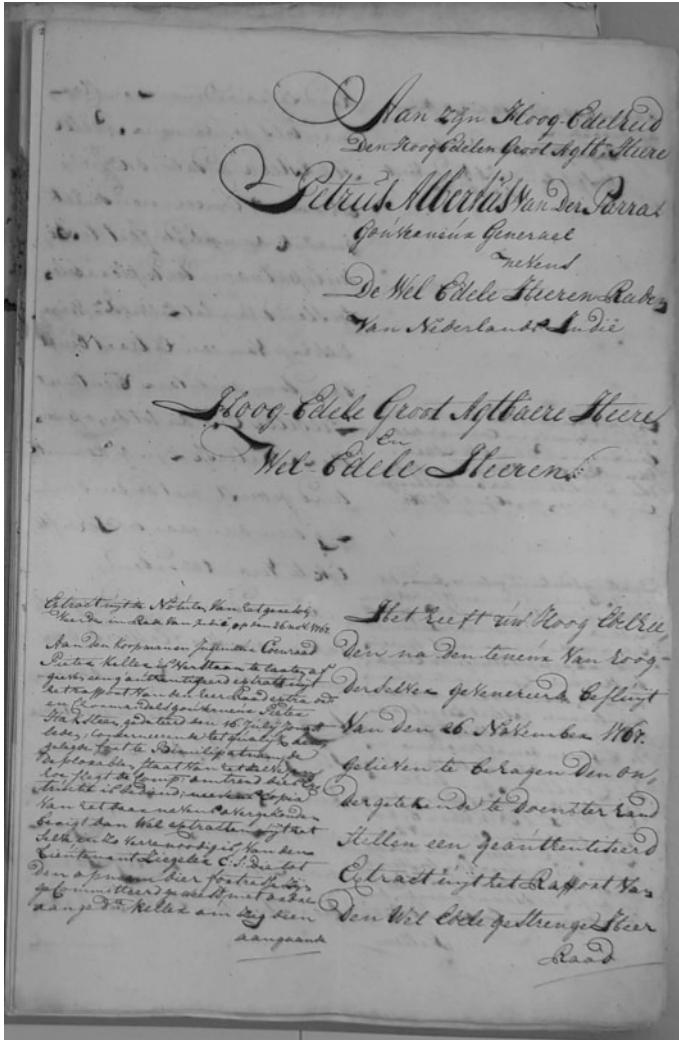 Aan zijn Hoog-Edelheid
Den Hoog Edelen Groot Agtb: Heere
Petrus Albertus Van Der Parra
Gouverneur Generael
nevens
De Wel Edele Heeren Raden
Van Nederlands Indië
Hoog-Edele Groot Agtbaere Heere
En
Wel-Edele Heeren
Extract uijt de Notulen Van het gereso
in Rade Van op den 26 nov: 1767
Aan den Koopman Coenraad
Pieter Keller is Verstaan te laaten af
geven een geauthentiseerd extract uijt
het rapport Van den heer Raad extra ord
en Cormandels gouverneur Pieter
Haksteen, gedateerd den 16 Julij Jongst
leden, Concerneerende
gelegde fort te Bimilipatnam, de
deplorable staat Van het
hoe slegt de Comp: omtrend
is bediend, nevens Copia
Van het daar nevens overgesonden
berigt dan Wel extracten uijt het
selve in zo Verre noodig is Van den
Lieutenant C:S: die tot
den opneem dier
gecommitteerd geweest, met
aan gem: Keller om zig dien
aangaande
Het heeft uw Hoog Edelhee,
den na den teneur Van hoog-
Derselver gevenereerd besluijt
Van den 26. November 1767.
gelieven te behagen Den on,
dergetekende te doen ter hand
stellen een geauthentiseerd
Extract uijt het Rapport Van
Den Wel Edele gestrenge Heer
Raad